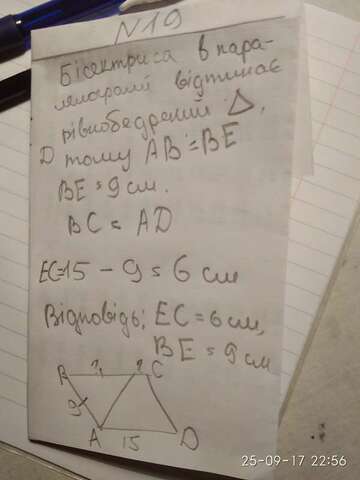 N19
Бісектриса в пара-
лелограмі відтинає
рівнобедрений Δ,
D тому AB = BE
BE = 9 см.
BC = AD
EC=15 - 9 = 6 см
Відповідь; EC = 6 см,
BE = 9 см
B ? ? C
9
A 15 D
25-09-17 22:56